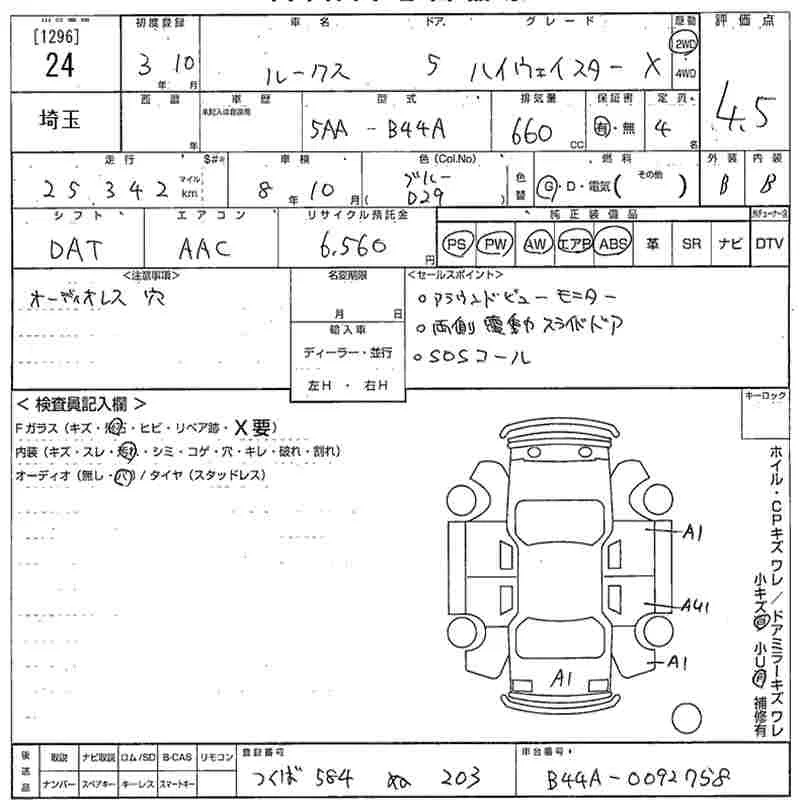 [1296]
24
埼玉
初度登録
3年 10月
車名
ルークス
ドア
5
グレード
ハイウェイスター X
原動
2WD
4WD
評価点
4.5
年
車歴
未記入は自家用
型式
5AA - B44A
排気量
660 CC
保証書
有・無
定員
4名
走行
25,342
マイル
km
車検
8年 10月
色(Col.No)
ブルー
( D29 )
色替
燃料
G・D・電気( その他 )
外装
B
内装
B
シフト
DAT
エアコン
AAC
リサイクル預託金
6,560円
純正装備品
PS PW AW エアB ABS 革 SR ナビ DTV
<注意事項>
オーディオレス 穴
名変期限
月 日
輸入車
ディーラー・並行
左H・右H
<セールスポイント>
○アラウンドビューモニター
○両側電動スライドドア
○SOSコール
キーロック
<検査員記入欄>
Fガラス(キズ・飛石・ヒビ・リペア跡・X要)
内装(キズ・スレ・汚れ・シミ・コゲ・穴・キレ・破れ・割れ)
オーディオ(無し・穴)/タイヤ(スタッドレス)
A1
AU1
A1
A1
ホイル・CPキズ ワレ/ドアミラーキズ ワレ
小キズ有 小U有 補修有
後送品
取説 ナビ取説 ロム/SD B-CAS リモコン
ナンバー スペアキー キーレス スマートキー
登録番号
つくば 584 ぬ 203
車台番号
B44A-0092758